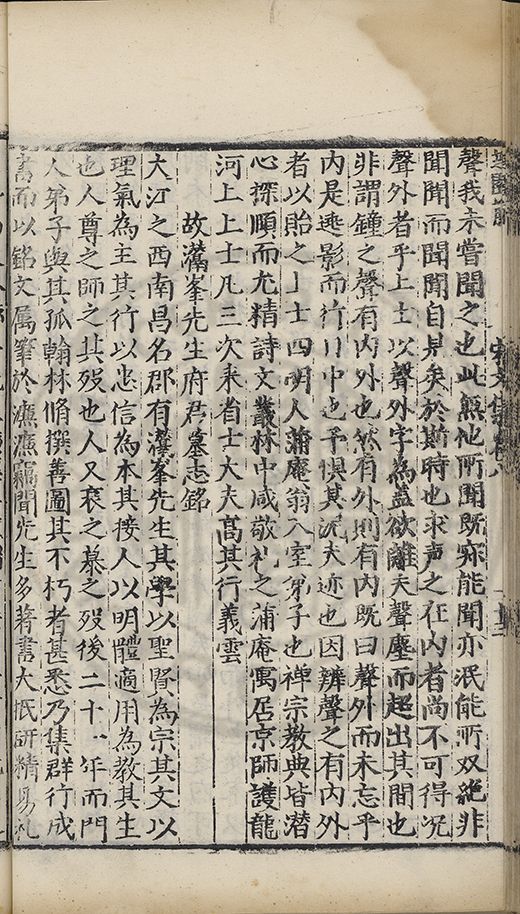 聲我未嘗聞之也此無他所聞既寂能聞亦泯能所双絶非
聞聞而聞聞自見矣於斯時也求声之在内者尚不可得况
聲外者乎上士以聲外字為盖欲離夫聲塵而超出其間也
非謂鐘之聲有内外也然有外則有内既曰聲外而未忘乎
内是逃影而行日中也予惧其泥夫迹也因辨聲之有内外
者以貽之上士四明人蒲庵翁入室弟子也禅宗教典皆潜
心探賾而尤精詩文叢林中咸敬礼之蒲庵寓居京師護龍
河上上士凡三次来省士大夫髙其行義雲
故灊峯先生府君墓志銘
大江之西南昌名郡有灊峯先生其學以聖賢為宗其文以
理氣為主其行以忠信為本其接人以明體適用為教其生
也人尊之師之其殁也人又哀之慕之殁後二十一年而門
人弟子與其孤翰林脩撰善圖其不朽者甚悉乃集群行成
書而以銘文属筆於濂濂竊聞先生多著書大抵研精易礼